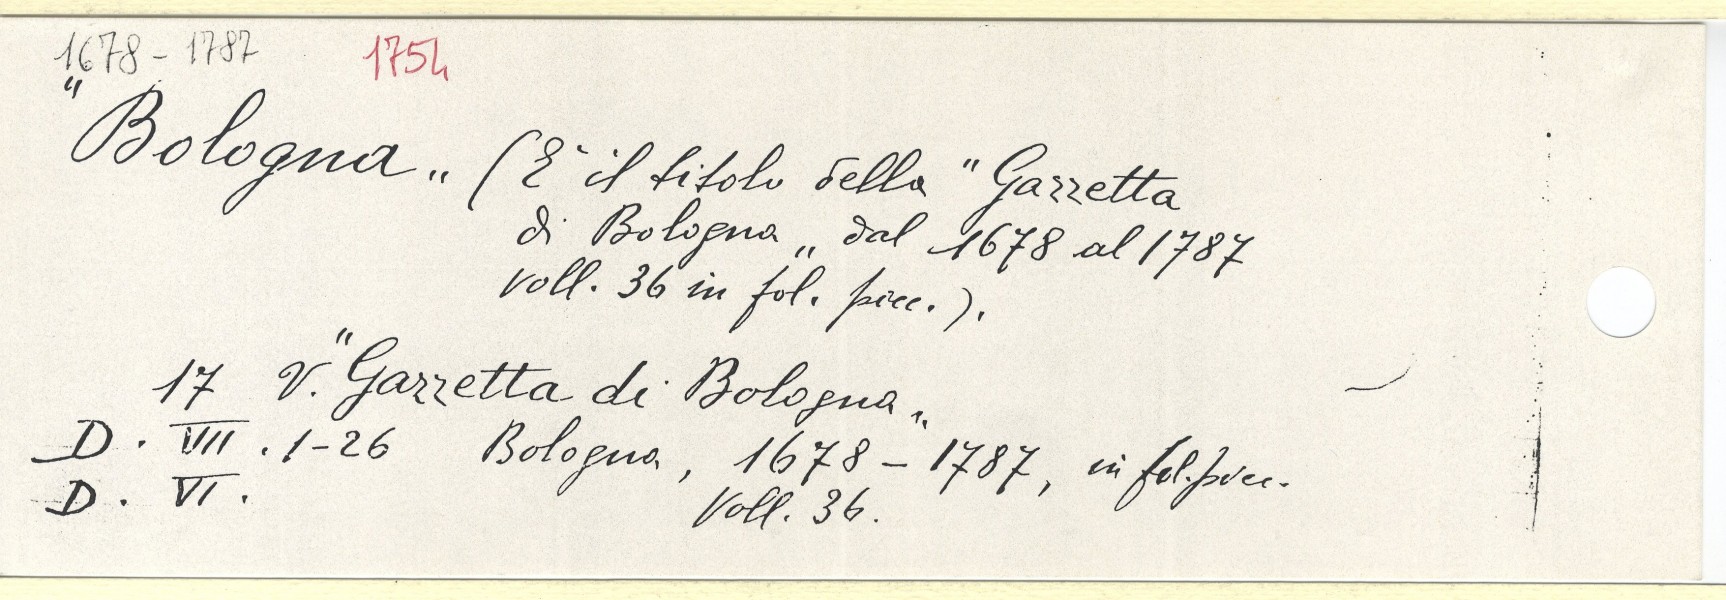 1678 - 1787 1754
"Bologna„ (È il titolo della "Gazzetta
di Bologna„ dal 1678 al 1787
voll. 36 in fol. picc.).
17 V. "Gazzetta di Bologna„
D. VII. 1-26 Bologna, 1678 - 1787, in fol. picc.
D. VI. Voll. 36.